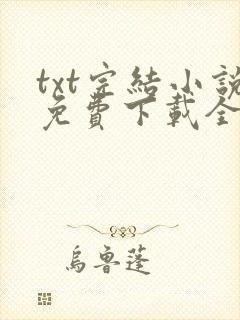 txt完結小說
免費下載全
烏魯蓬